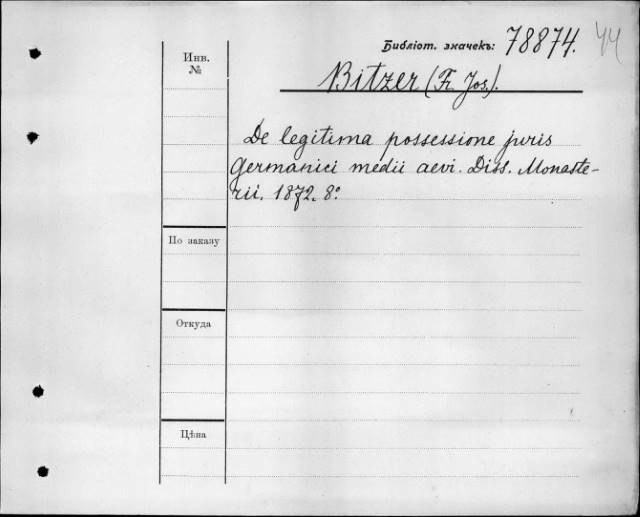 Библіот. значекъ: 78874. 44
Инв.
№
Bitzer (Fr. Jos.).
De legitima possessione juris
Germanici medii aevi. Diss. Monaste-
rii. 1872. 8º
По заказу
Откуда
Цѣна